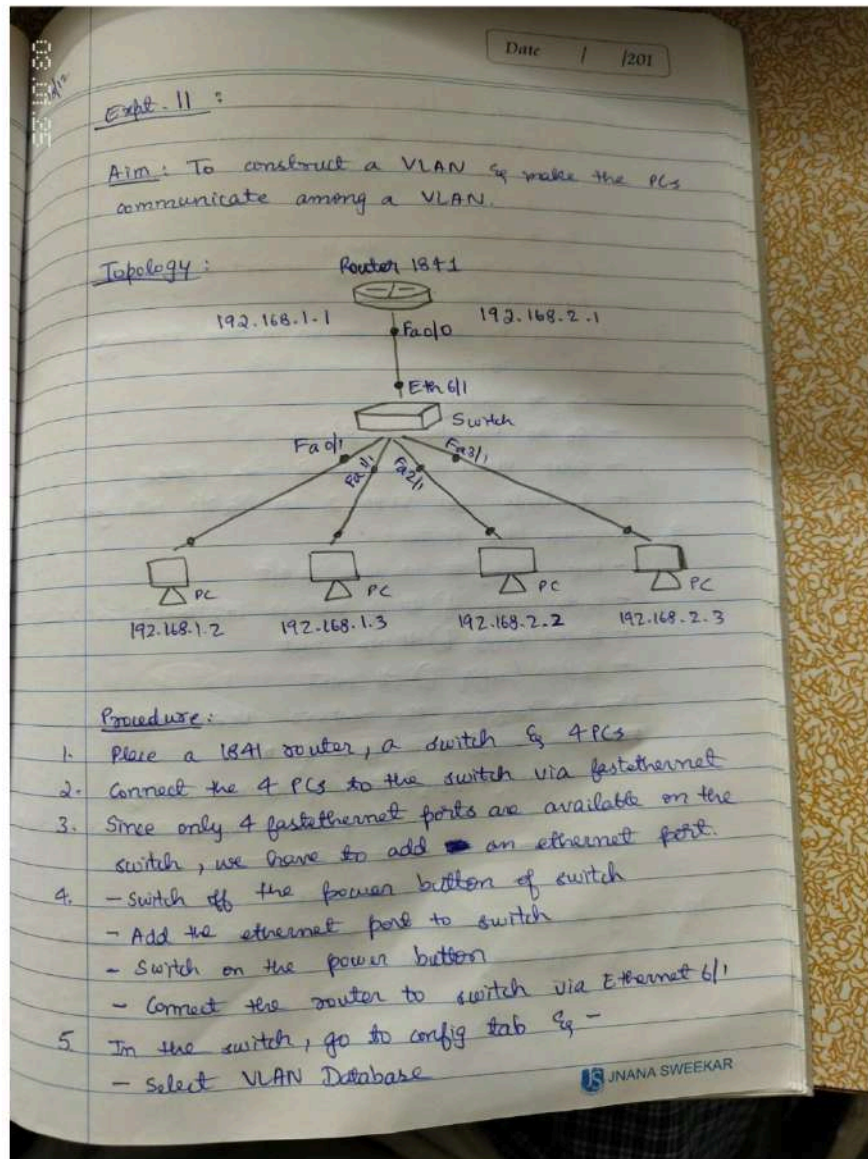 Date / /201
Expt. 11 :
Aim : To construct a VLAN & make the PCs
communicate among a VLAN.
Topology :
Router 1841
192.168.1.1
192.168.2.1
Fa0/0
Eth 6/1
Switch
Fa0/1
Fa1/1
Fa2/1
Fa3/1
PC
PC
PC
PC
192.168.1.2
192.168.1.3
192.168.2.2
192.168.2.3
Procedure :
1. Place a 1841 router, a switch & 4 PCs
2. Connect the 4 PCs to the switch via fastethernet
3. Since only 4 fastethernet ports are available on the
switch, we have to add an ethernet port.
4. - Switch off the power button of switch
- Add the ethernet port to switch
- Switch on the power button
- Connect the router to switch via Ethernet 6/1
5. In the switch, go to config tab & -
- Select VLAN Database
JS JNANA SWEEKAR